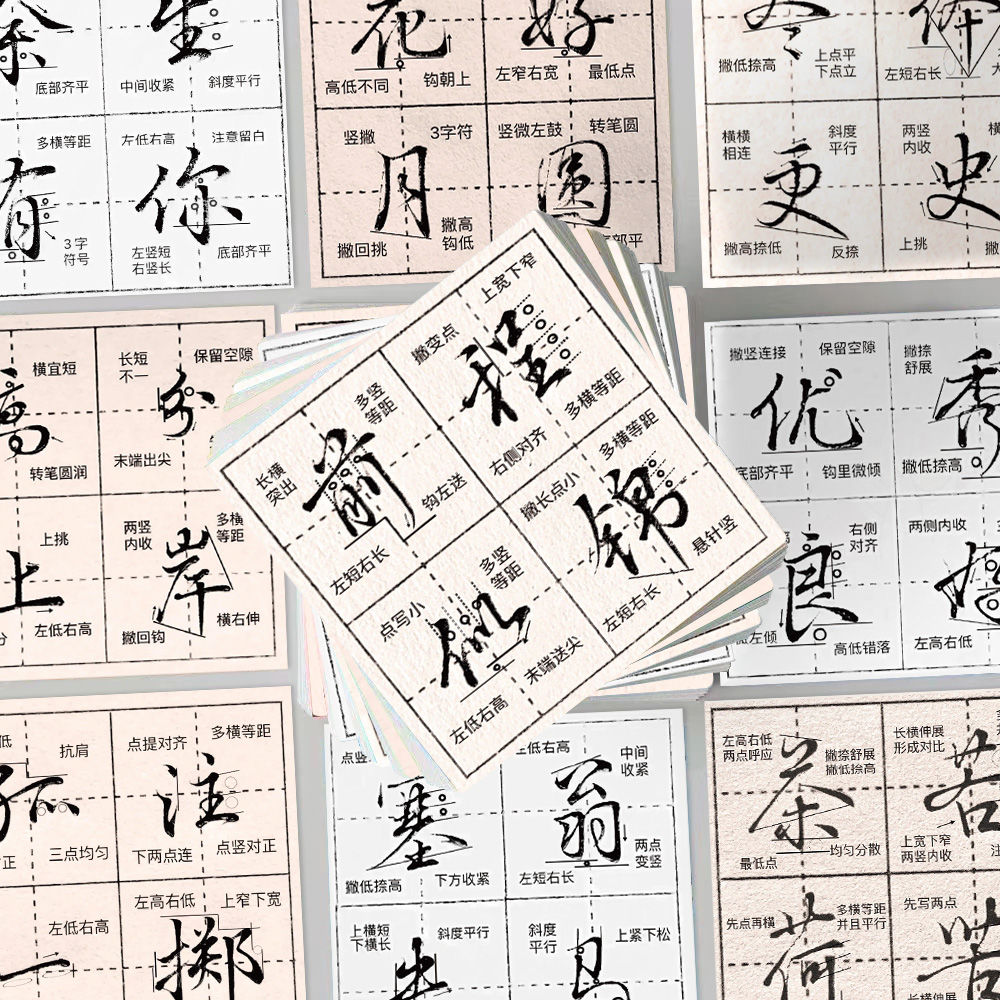 生
底部齐平
中间收紧
斜度平行
多横等距
左低右高
注意留白
有
你
3字
符号
左竖短
右竖长
底部齐平
花
好
高低不同
钩朝上
左窄右宽
最低点
竖撇
3字符
竖微左鼓
转笔圆
月
圆
撇回挑
撇高
钩低
撇低捺高
上点平
下点立
左短右长
横横
相连
斜度
平行
两竖
内收
更
史
撇高捺低
反捺
上挑
横宜短
长短
不一
保留空隙
转笔圆润
末端出尖
上挑
两竖
内收
多横
等距
上
岸
左低右高
撇回钩
横右伸
撇变点
上宽下窄
程
右侧对齐
多横等距
长横
突出
多竖
等距
前
钩左送
左短右长
撇长点小
多横等距
锦
左短右长
悬针竖
点写小
多竖
等距
似
左低右高
末端送尖
撇竖连接
保留空隙
撇捺
舒展
优
秀
底部齐平
钩里微倾
撇低捺高
右侧
对齐
两侧内收
良
左倾
高低错落
左高右低
抗肩
点提对齐
多横等距
注
三点均匀
下两点连
点竖对正
左低右高
左高右低
上窄下宽
掷
左低右高
中间
收紧
塞
翁
撇低捺高
下方收紧
左短右长
两点
变竖
上横短
下横长
斜度平行
斜度
平行
上紧下松
左高右低
两点呼应
撇捺舒展
撇低捺高
长横伸展
形成对比
茶
若
最低点
均匀分散
上宽下窄
两竖内收
先点再横
多横等距
并且平行
先写两点
荷
长横伸展